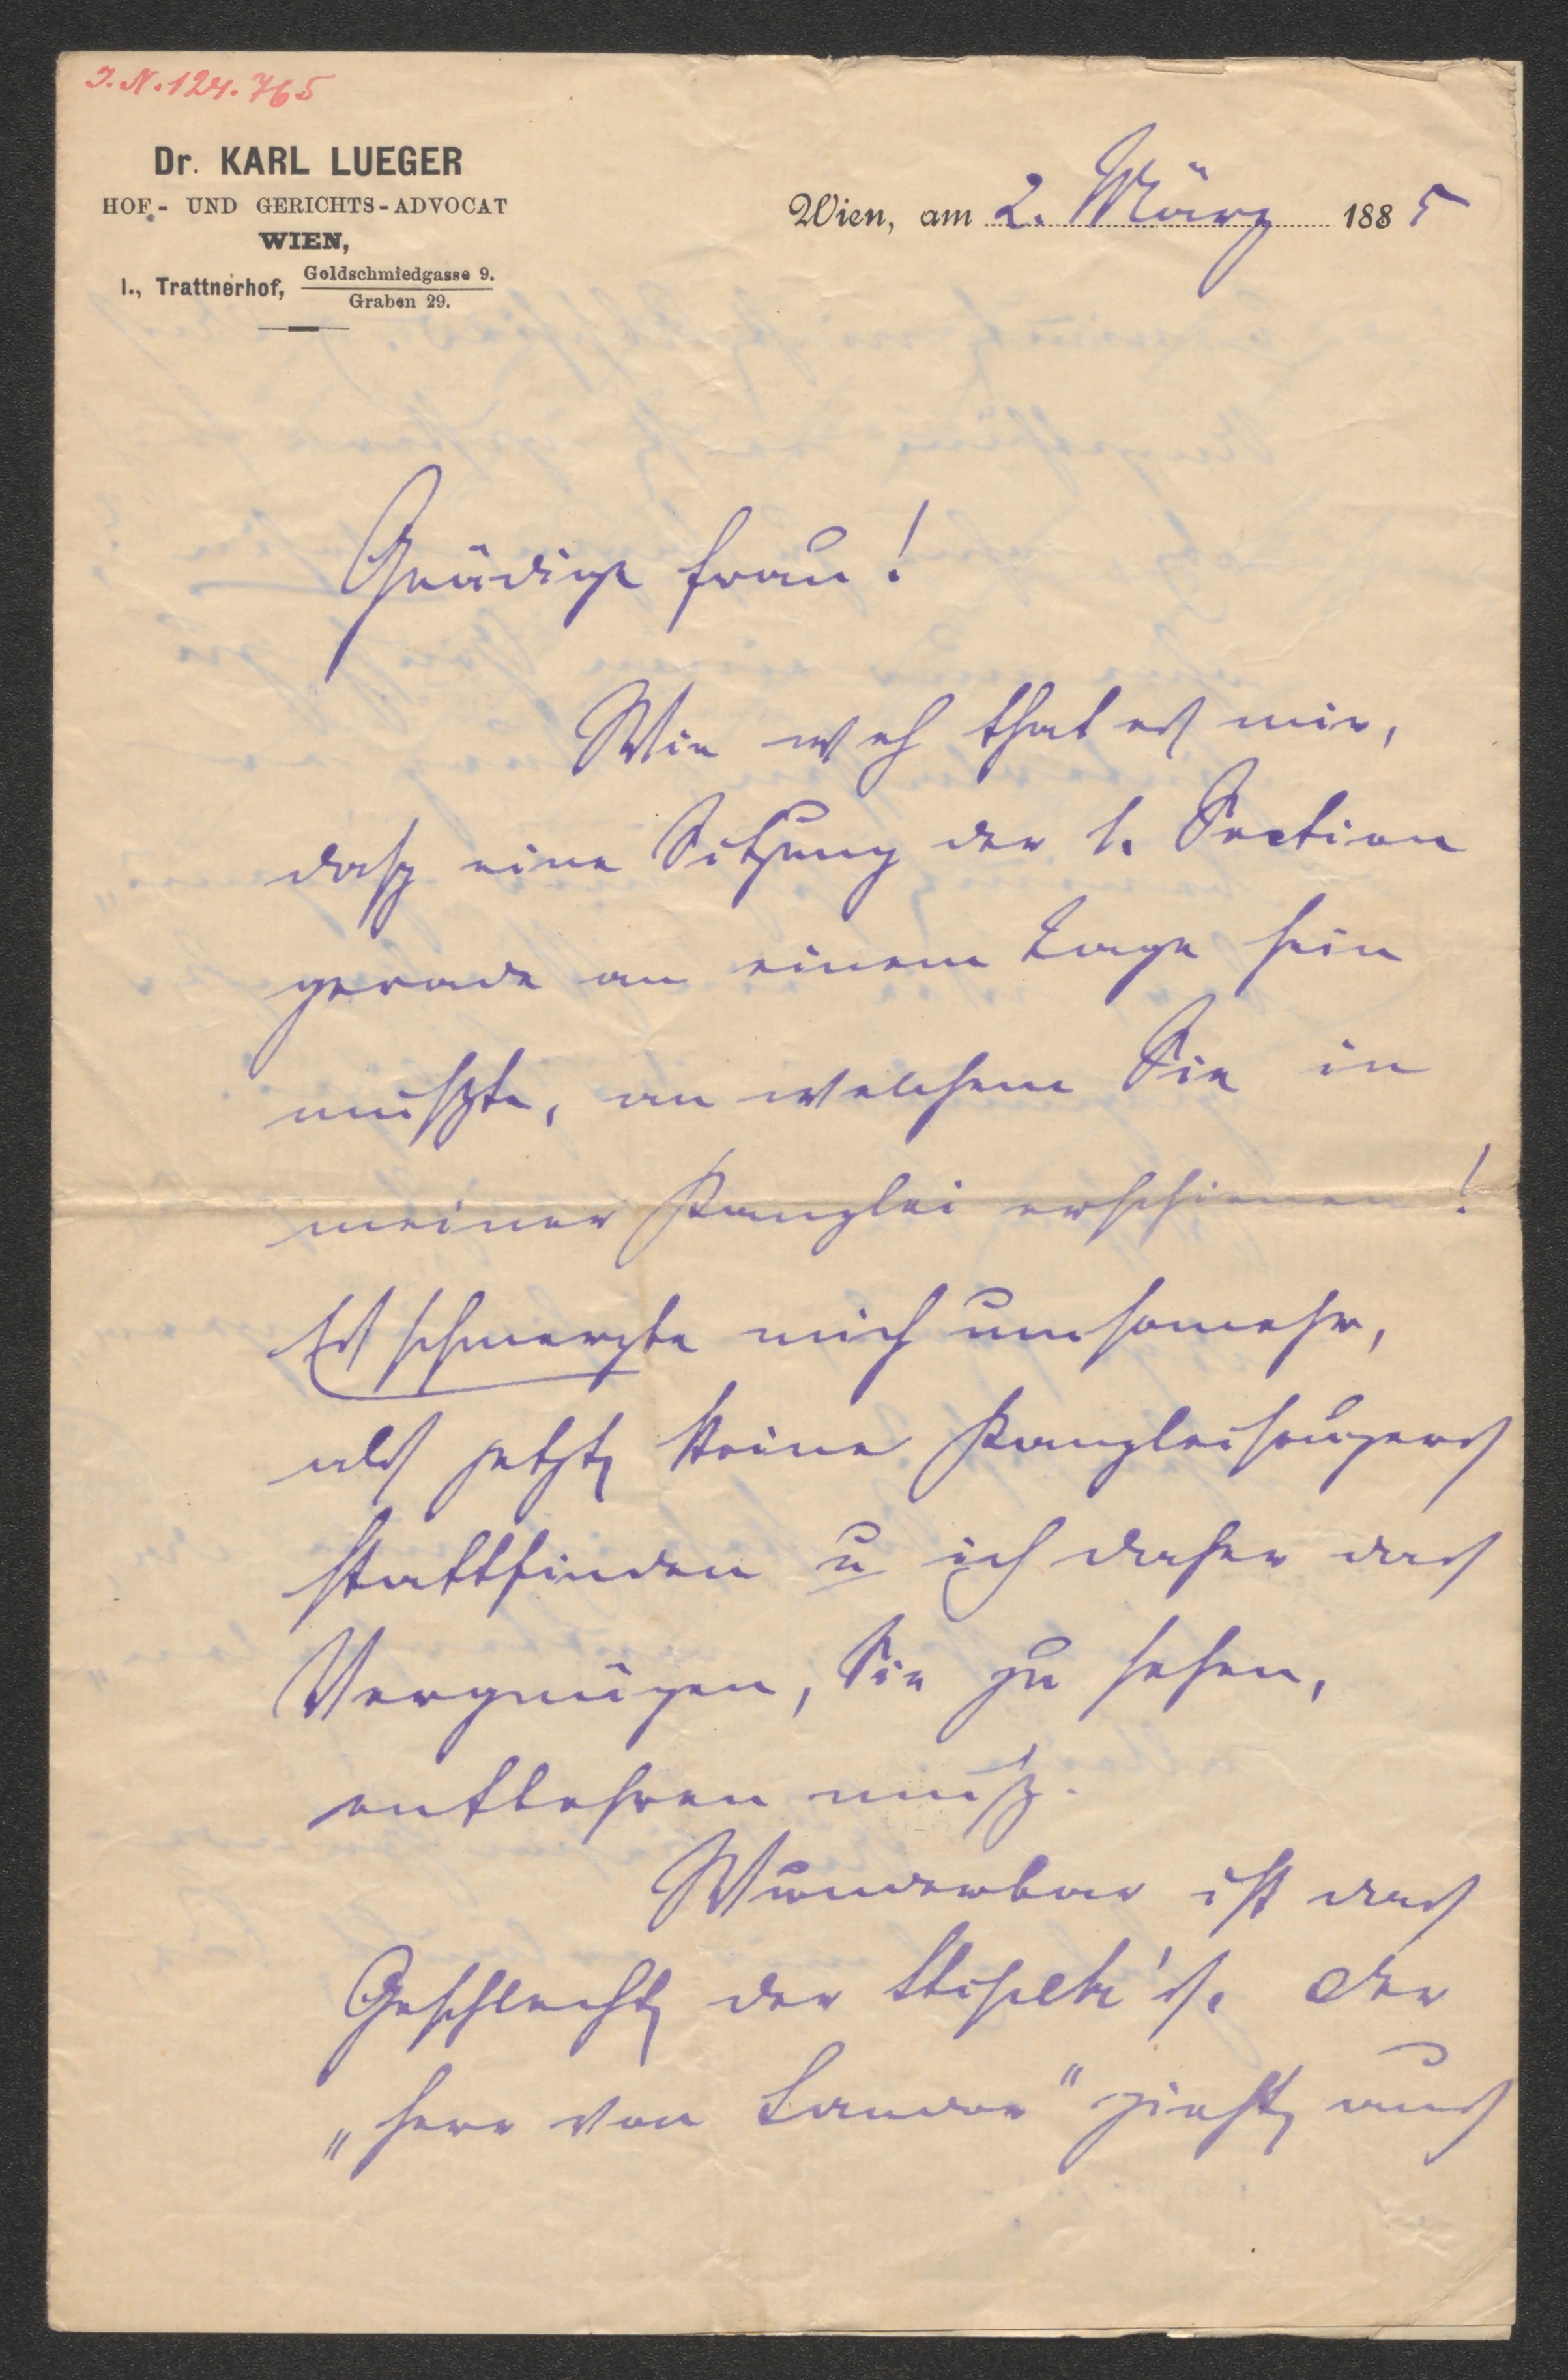 I. N. 124.765
Dr. KARL LUEGER
HOF- UND GERICHTS-ADVOCAT
WIEN,
I., Trattnerhof, Goldschmiedgasse 9.
Graben 29.
Wien, am 2. März 1885
Gnädige Frau!
Wie weh that es mir,
daß eine Sitzung der 1. Section
gerade an einem Tage sein
mußte, an welchem Sie in
meiner Kanzlei erschienen!
Es schmerzte mich umsomehr,
als jetzt keine
stattfinden u ich daher das
Vergnügen, Sie zu sehen,
entbehren muß.
Wunderbar ist das
Geschlecht der . Der
„Herr von " zieht aus